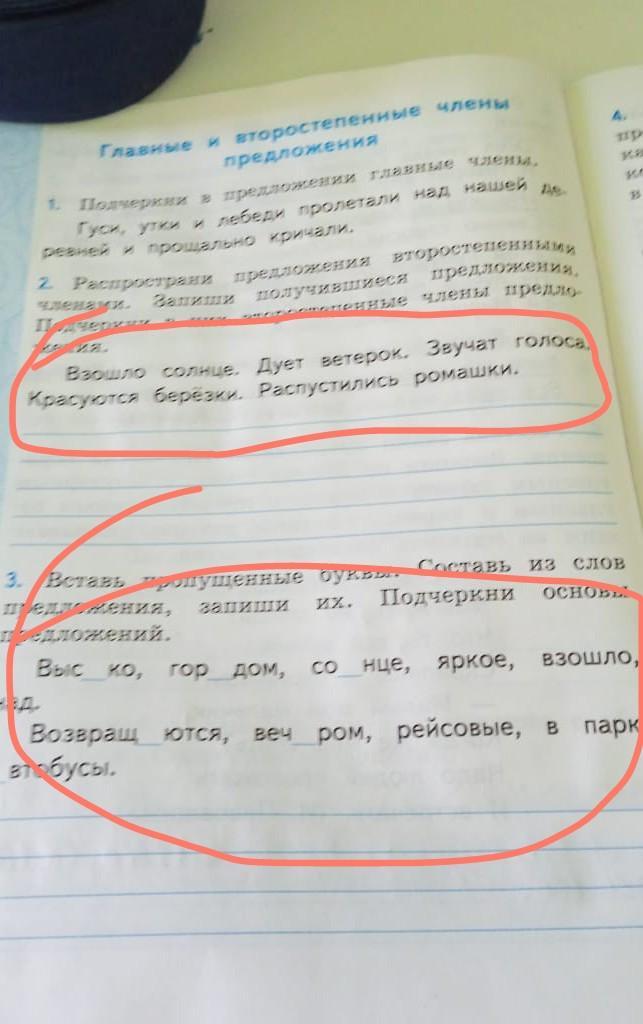 Главные и второстепенные члены
предложения
4.
1. Подчеркни в предложении главные члены.
Гуси, утки и лебеди пролетали над нашей де-
ревней и прощально кричали.
2. Распространи предложения второстепенными
членами. Запиши получившиеся предложения.
Подчеркни в них второстепенные члены предло-
жения.
Взошло солнце. Дует ветерок. Звучат голоса.
Красуются берёзки. Распустились ромашки.
3. Вставь пропущенные буквы. Составь из слов
предложения, запиши их. Подчеркни основы
предложений.
Выс_ко, гор_дом, со_нце, яркое, взошло,
над.
Возвращ_ются, веч_ром, рейсовые, в парк
_втобусы.